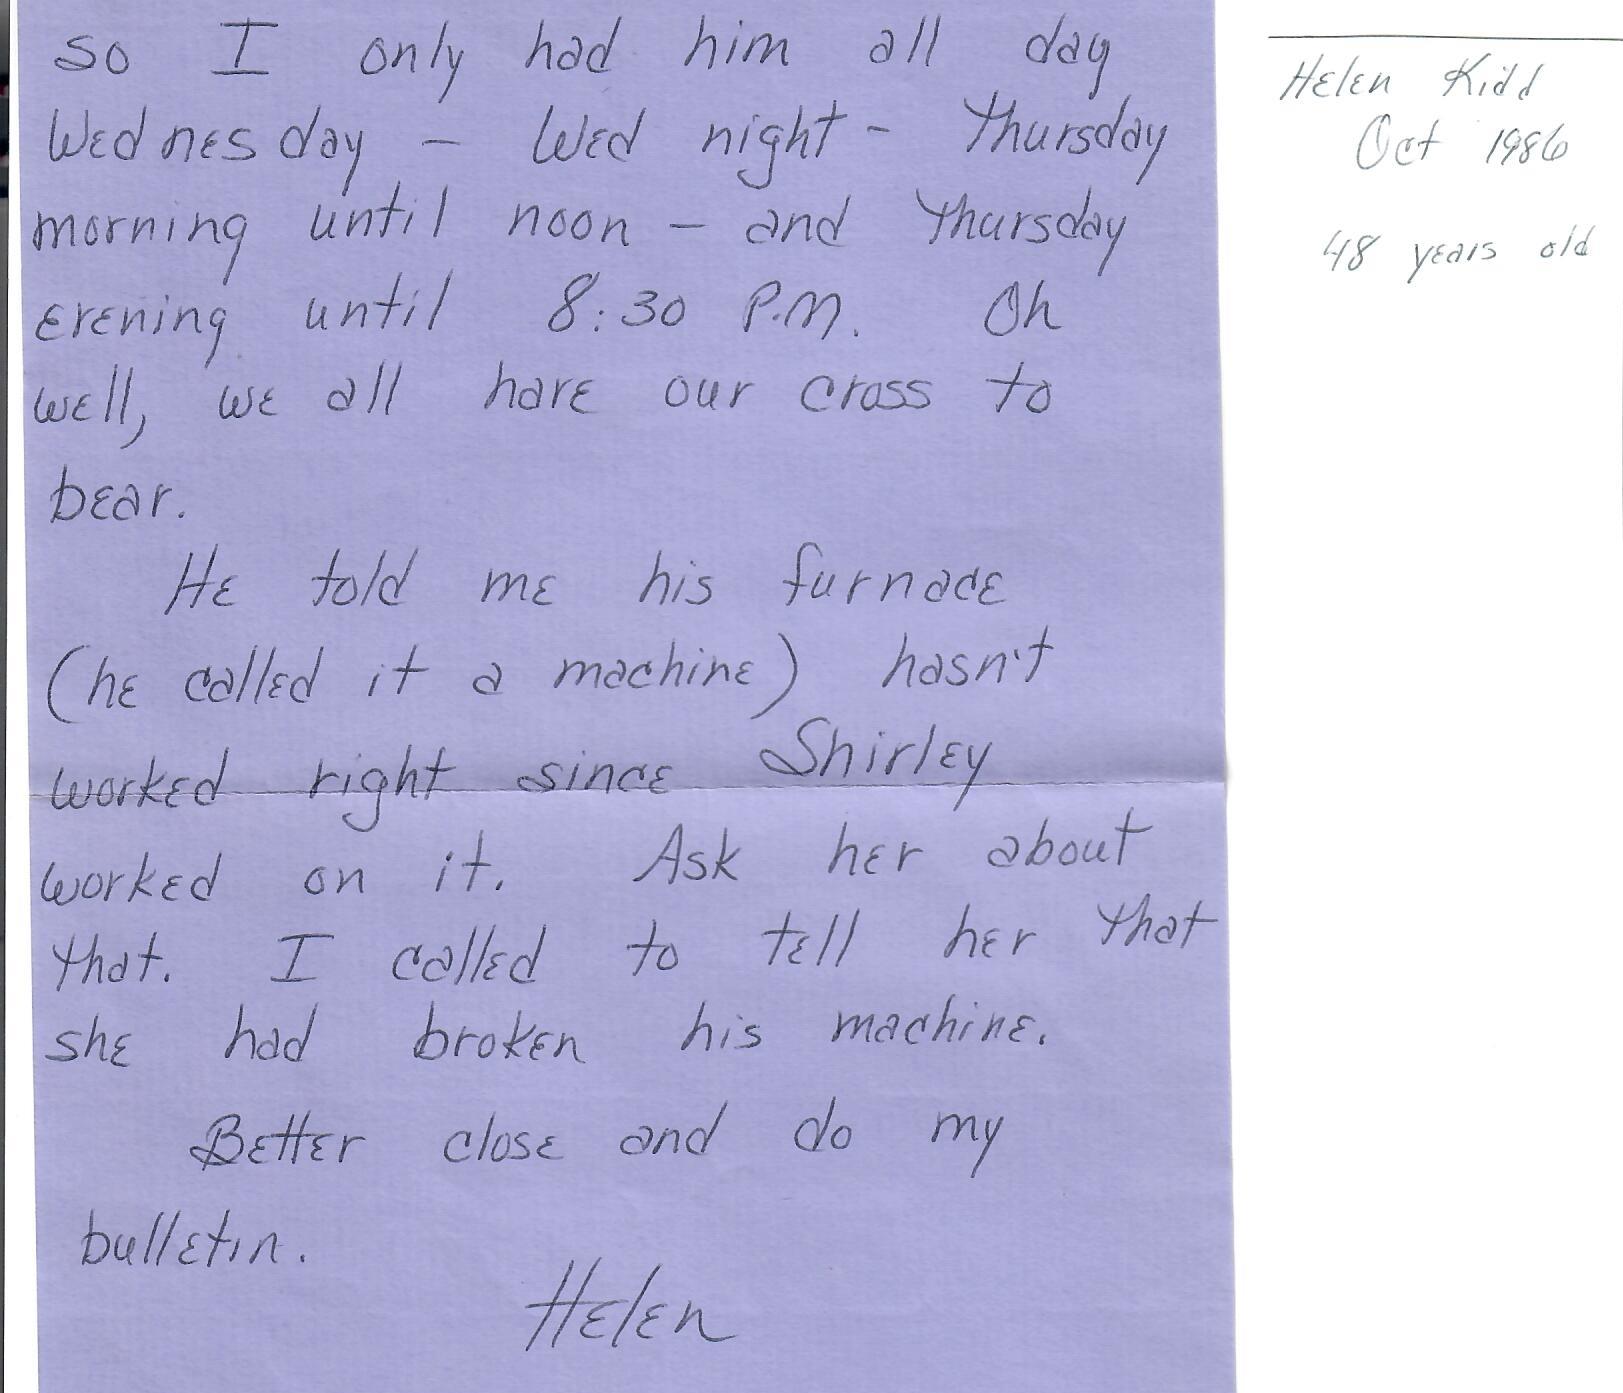 so I only had him all day
Wednesday – Wed night – Thursday
morning until noon – and Thursday
evening until 8:30 P.M. Oh
well, we all have our cross to
bear.
He told me his furnace
(he called it a machine) hasn't
worked right since Shirley
worked on it. Ask her about
that. I called to tell her that
she had broken his machine.
Better close and do my
bulletin.
Helen
Helen Kidd
Oct 1986
48 years old